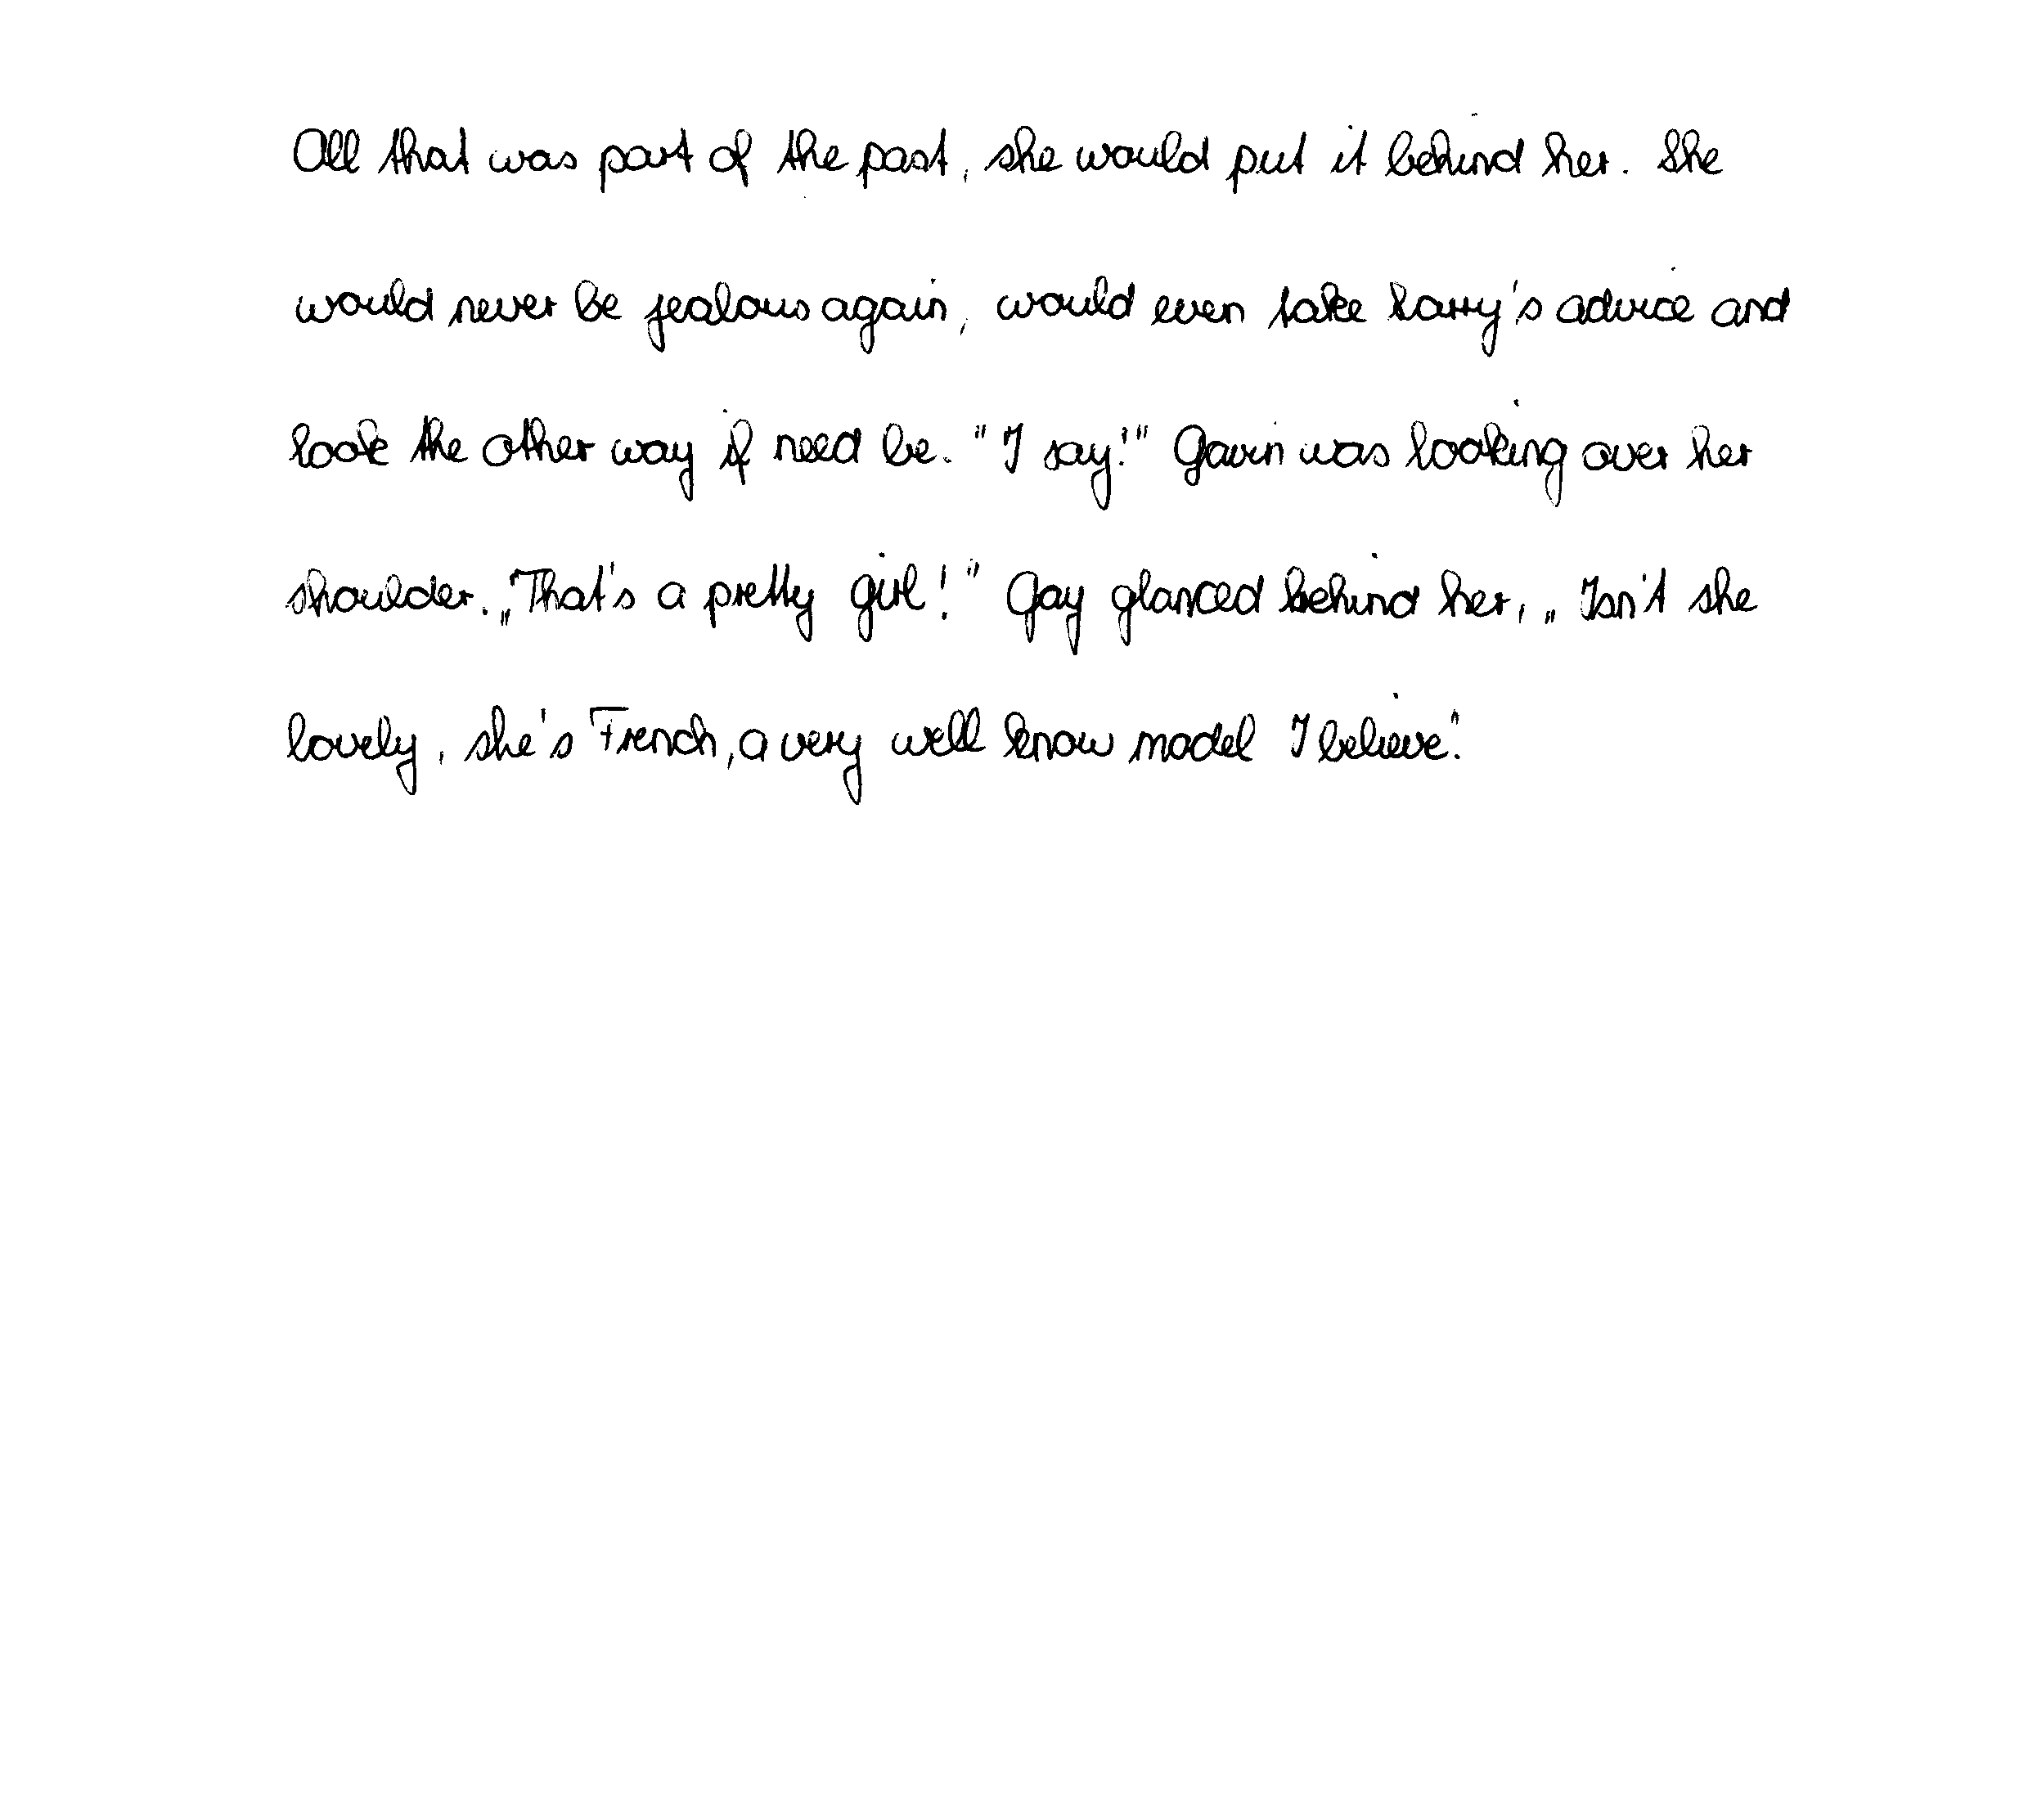 All that was part of the past, she would put it behind her. She
would never be jealous again, would even take Larry's advice and
look the other way if need be. "I say!" Gavin was looking over her
shoulder. „That's a pretty girl!" Gay glanced behind her, „Isn't she
lovely, she's French, a very well know model I believe."